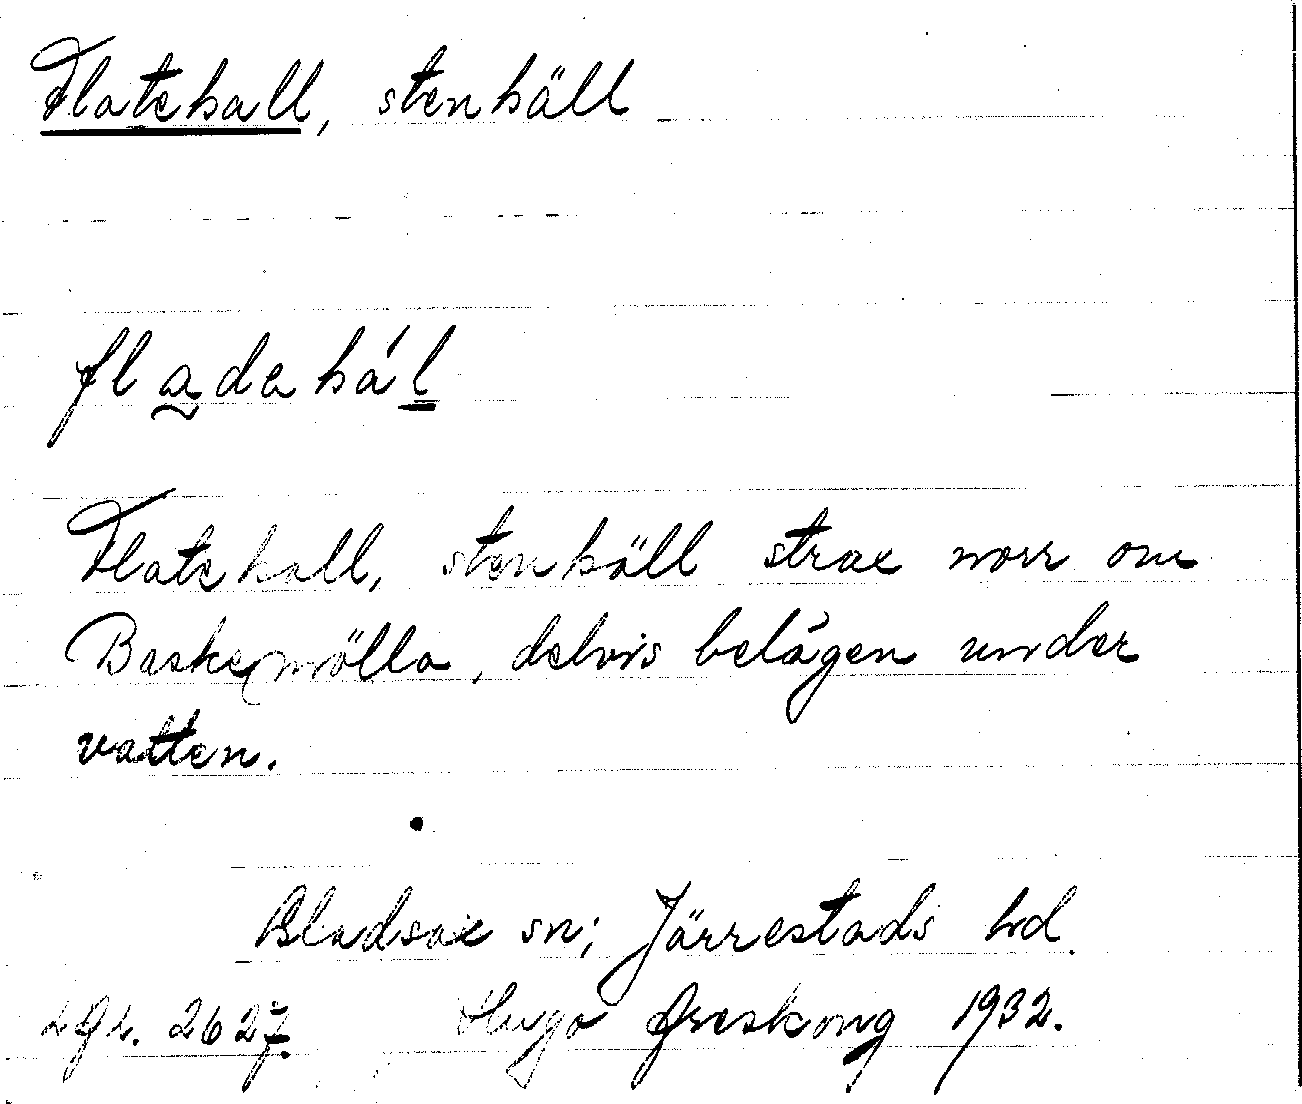 Flatehall, stenhäll
fladahál
Flatehall, stenhäll strax norr om
Baskemölla, delvis belägen under
vatten.
Bladsax sn; Järrestads hd.
Lgr. 2627. Hugo Areskoug 1932.